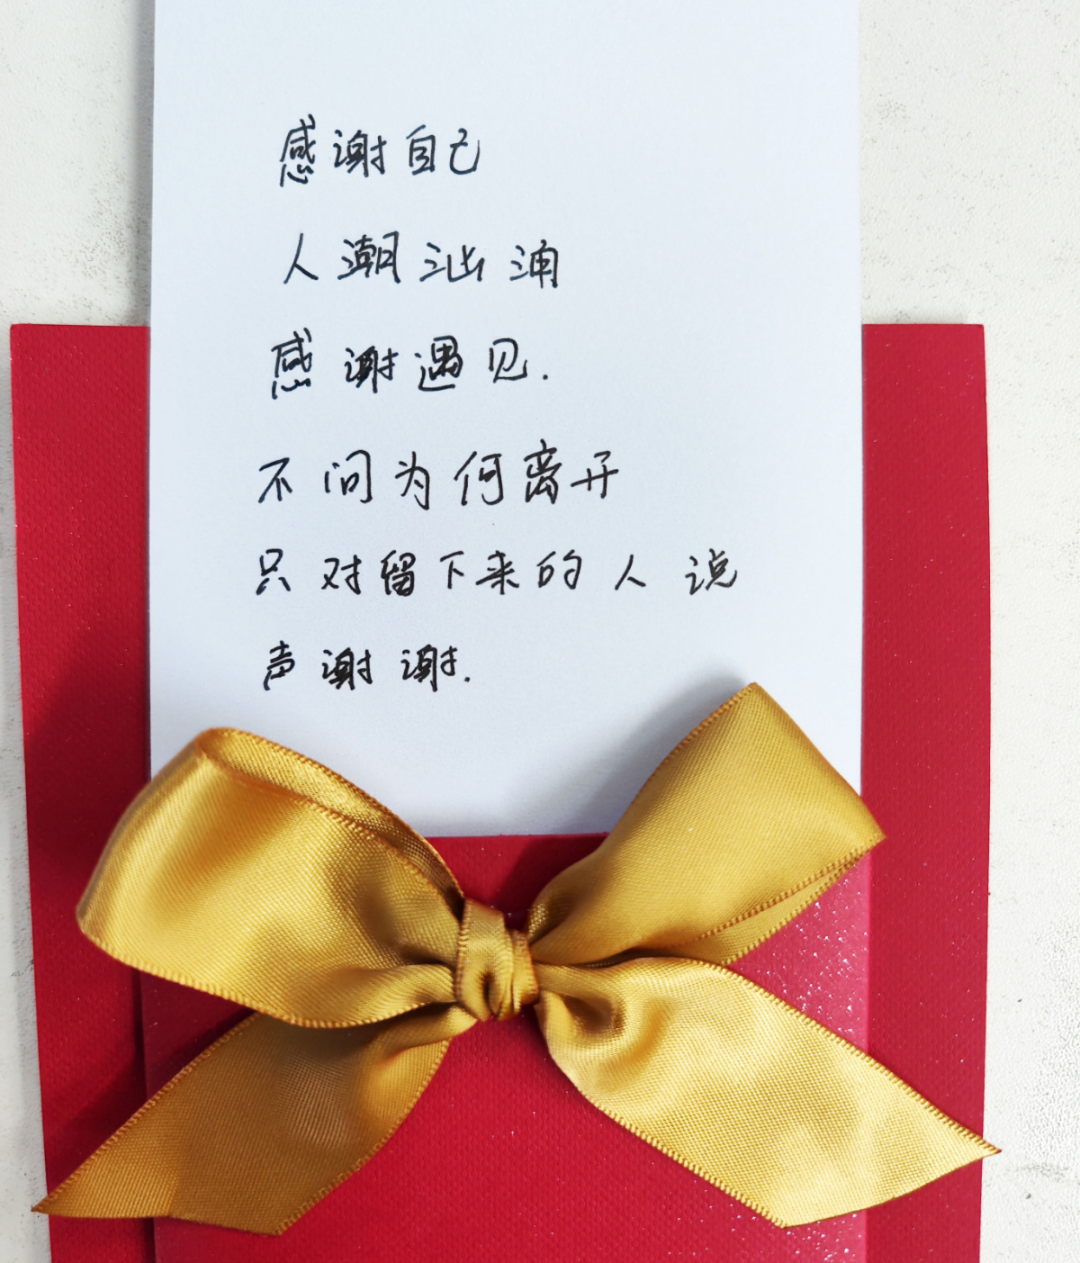 感谢自己
人潮汹涌
感谢遇见.
不问为何离开
只对留下来的人说
声谢谢.